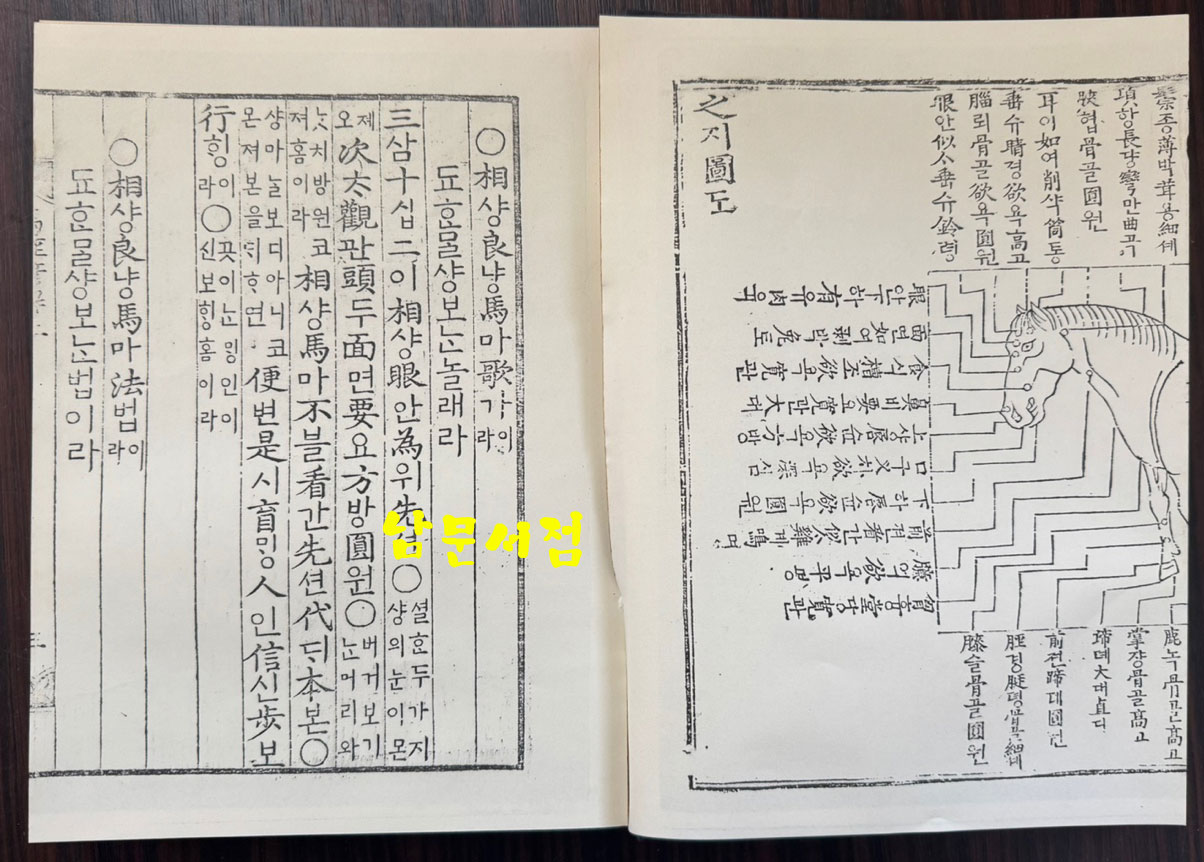 鬃종薄박茸용細셰
項항長댱彎만曲곡
頰협骨골圓원
耳이如여削샥筒통
垂슈睛졍欲욕高고
腦뢰骨골欲욕圓원
眼안似ᄉᆞ垂슈鈴령
之지圖도
眼안下하有유肉육
面면如여剝박兔토
食식槽조欲욕寬관
鼻비要요寬관大대
上샹唇슌欲욕方방
口구叉차欲욕深심
下하唇슌欲욕圓원
前젼看간似ᄉᆞ雞계鳴명
臆억欲욕平평
胷흉堂당寬관
鹿녹骨골高고
掌쟝骨골高고
蹄뎨大대直딕
前젼蹄뎨圓원
脛경脡뎡骨골細셰
膝슬骨골圓원
○相샹良냥馬마歌가이라
됴ᄒᆞᆫᄆᆞᆯ샹보ᄂᆞᆫ놀래라
三삼十십二이相샹眼안為위先션○셜흔두가지샹의눈이몬
졔오次ᄎᆞ觀관頭두面면要요方방圓원○버거보기ᄂᆞᆫ머리와
ᄂᆞᆺ치방원코져홈이라相샹馬마不블看간先션代ᄃᆡ本본○
샹마ᄂᆞᆯ보디아니코몬져본을ᄃᆡᄒᆞ면便변是시盲ᄆᆡᆼ人인信신步보
行ᄒᆡᆼ이라○곳이ᄂᆞᆫᄆᆡᆼ인이신보ᄒᆡᆼ홈이라
○相샹良냥馬마法법이라
됴ᄒᆞᆫᄆᆞᆯ샹보ᄂᆞᆫ법이라
남문서점